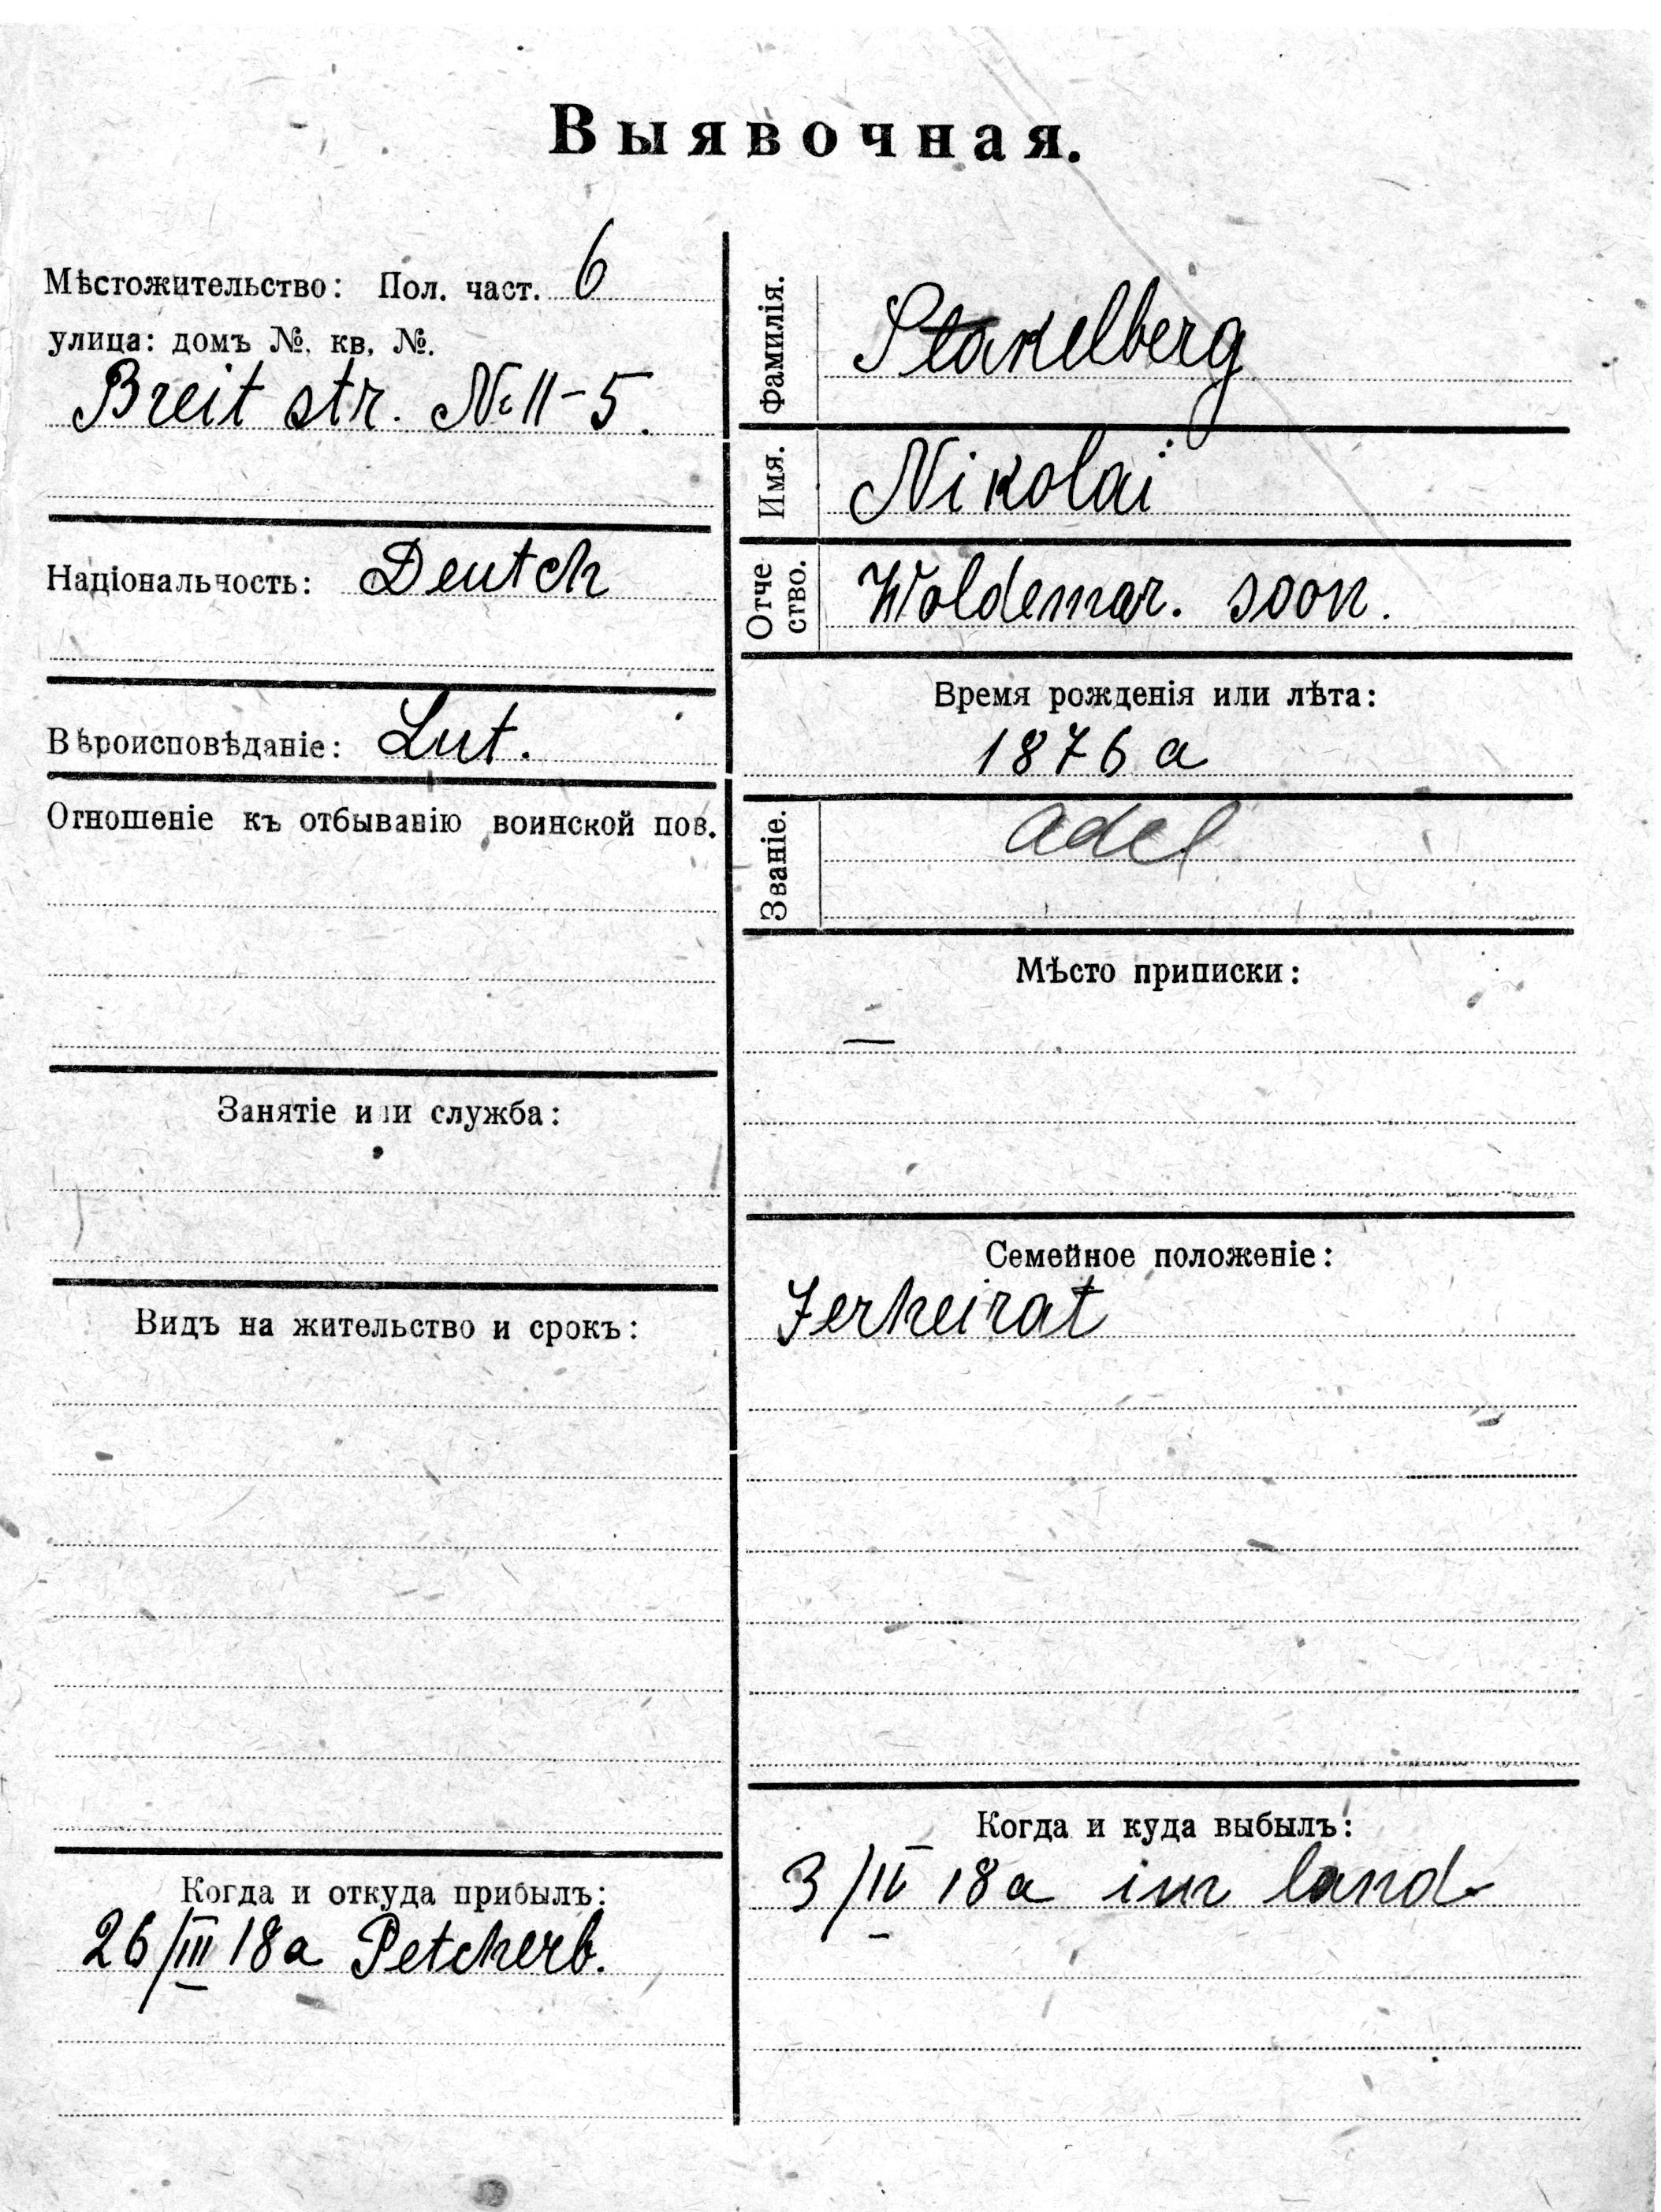 Выявочная.
Мѣстожительство: Пол. част. 6
улица: домъ №. кв. №.
Breit str. № 11-5.
Національность: Deutch
Вѣроисповѣданіе: Lut.
Отношеніе къ отбыванію воинской пов.
Занятіе или служба:
Видъ на жительство и срокъ:
Когда и откуда прибылъ:
26/III 18 a Petcherb.
Фамилія. Stakelberg
Имя. Nikolai
Отче
ство. Woldemar. soon.
Время рожденія или лѣта:
1876 a
Званіе. adel
Мѣсто приписки:
—
Семейное положеніе:
Ferheirat
Когда и куда выбылъ:
3/IV 18 a im land